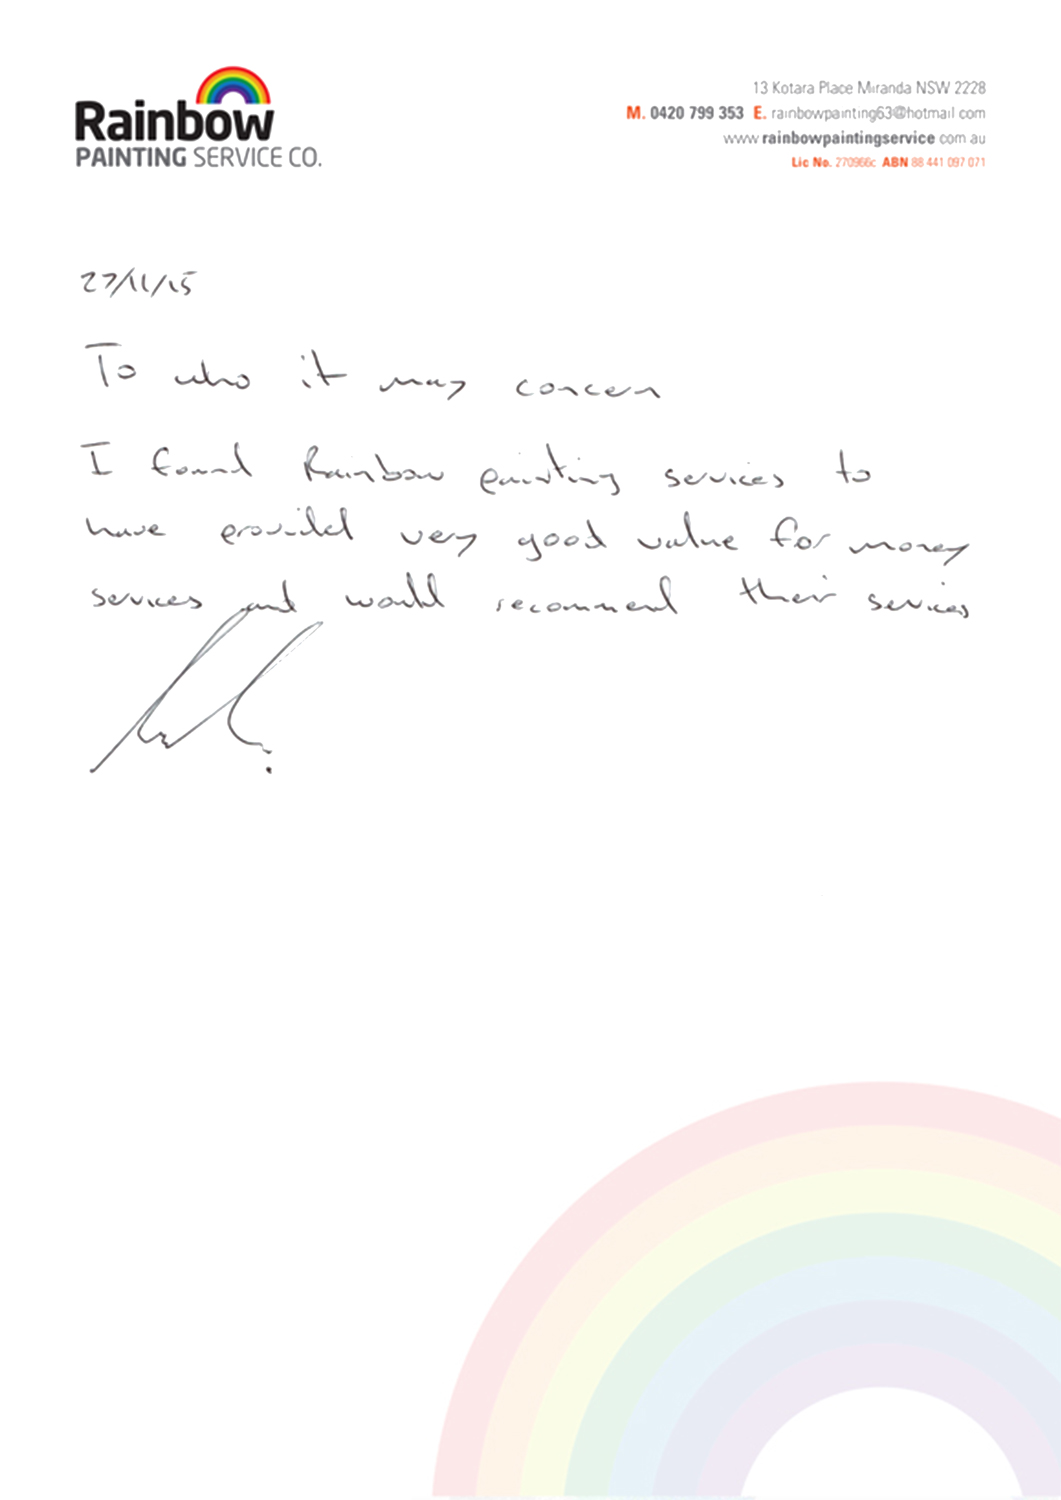 Rainbow
PAINTING SERVICE CO.
13 Kotara Place Miranda NSW 2228
M. 0420 799 353 E. rainbowpainting63@hotmail com
www rainbowpaintingservice com au
Lic No. 270966c ABN 88 441 097 071
27/11/15
To who it may concern
I found Rainbow painting services to
have provided very good value for money
services and would recommend their services